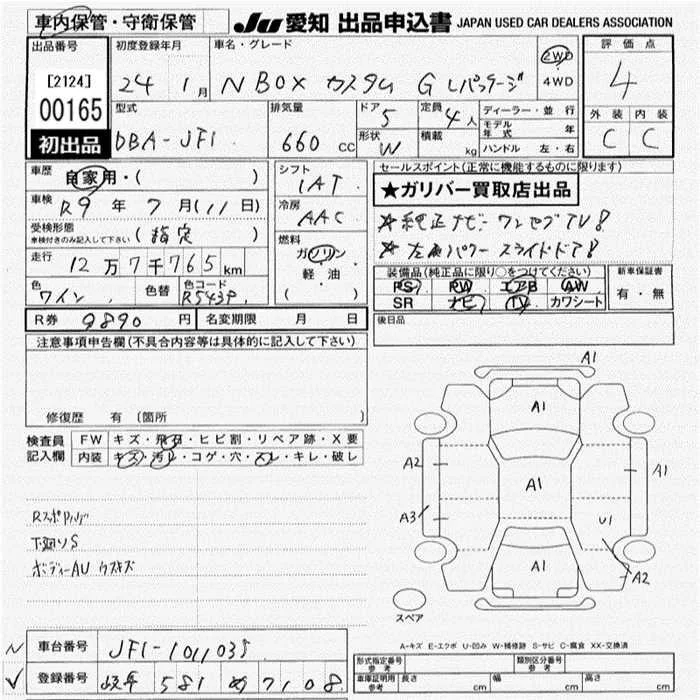 車内保管・守衛保管
JU 愛知 出品申込書 JAPAN USED CAR DEALERS ASSOCIATION
出品番号
[2124]
00165
初出品
初度登録年月
24 1月
車名・グレード
N BOX カスタム G Lパッケージ
2WD
4WD
評価点
4
外装 内装
C C
型式
DBA-JF1
排気量
660 CC
ドア
5
形状
W
定員
4人
積載
kg
ディーラー・並 行
モデル年式 年
ハンドル 左・右
車歴
自家用・( )
車検
R9 年 7 月(11日)
受検形態
車検付きのみ記入して下さい
(指定)
走行
12万7千765km
色
ワイン
色替
色コード
R543P
シフト
IAT
冷房
AAC
燃料
ガソリン
軽・油
( )
セールスポイント(正常に機能するものに限ります)
★ガリバー買取店出品
☆純正ナビ ワンセグTV!
☆左側パワースライドドア!
装備品(純正品に限り○をつけてください)
PS PW エアB AW
SR ナビ TV カワシート
新車保証書
有・無
後日品
R券 9890 円
名変期限 月 日
注意事項申告欄(不具合内容等は具体的に記入して下さい)
修復歴 有 〔箇所
検査員記入欄
FW キズ・飛石・ヒビ割・リペア跡・X要
内装 キズ・汚レ・コゲ・穴・スレ・キレ・破レ
下廻りS
ボディーAU ウスキズ
A1
A1
A2
A1
A1
A3
U1
A1
A2
スペア
A-キズ E-エクボ U-凹み W-補修跡 S-サビ C-腐食 XX-交換済
N 車台番号 JF1-1011035
✓ 登録番号 岐阜 581 ぬ 7108
形式指定番号
参考
類別区分番号
参考
車庫証明用
参考
長さ cm
幅 cm
高さ cm